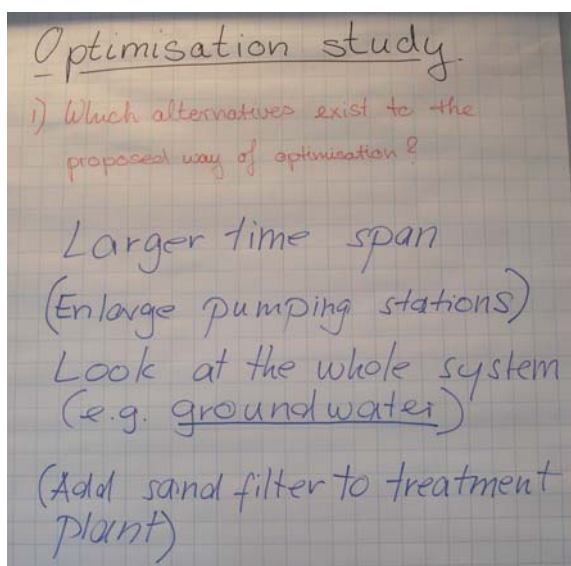 Optimisation study.
1) Which alternatives exist to the
proposed way of optimisation?
Larger time span
(Enlarge pumping stations)
Look at the whole system
(e.g. groundwater)
(Add sand filter to treatment
plant)